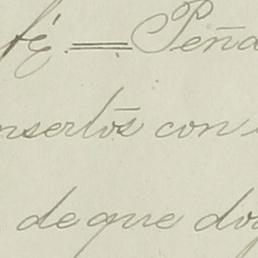 fé. = Peña
nsertos con
de que doy